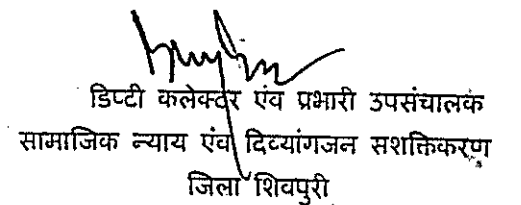 डिप्टी कलेक्टर एंव प्रभारी उपसंचालक
सामाजिक न्याय एंव दिव्यांगजन सशक्तिकरण
जिला शिवपुरी